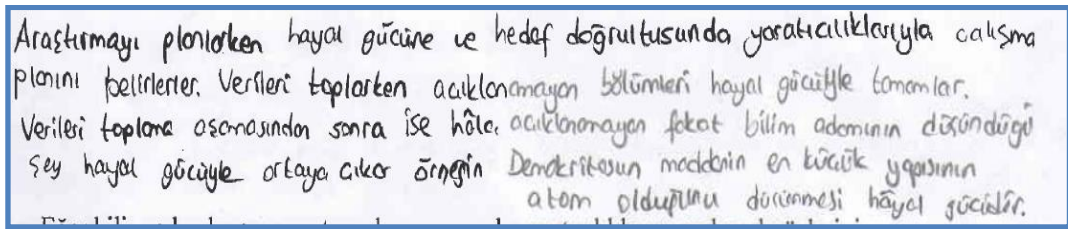 Araştırmayı planlarken hayal gücüne ve hedef doğrultusunda yaratıcılıklarıyla calışma
planını belirlerler. Verileri toplarken acıklanamayan bölümleri hayal gücüyle tamamlar.
Verileri toplama aşamasından sonra ise hâla acıklanamayan fakat bilim adamının düşündüğü
şey hayal gücüyle ortaya cıkar örneğin Demokritosun maddenin en kücük yapısının
atom olduğunu düsünmesi hayal gücüdür.